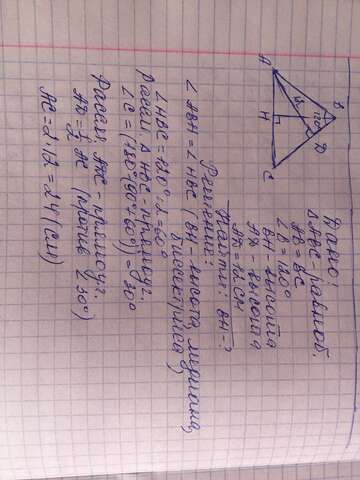 B
120°
D
A
H
C
Дано:
△ABC - равноб.
AB = BC
∠B = 120°
BH - высота
AD - высота
AD = 12 см
Найти: BH - ?
Решение:
∠ABH = ∠HBC (BH - высота, медиана,
биссектриса)
∠HBC = 120° : 2 = 60°
Рассм. △HBC - прямоуг.
∠C = (180° - (90° + 60°)) = 30°
Рассм. ADC - прямоуг.
AD = 1/2 AC (против ∠30°)
AC = 2 · 12 = 24 (см)